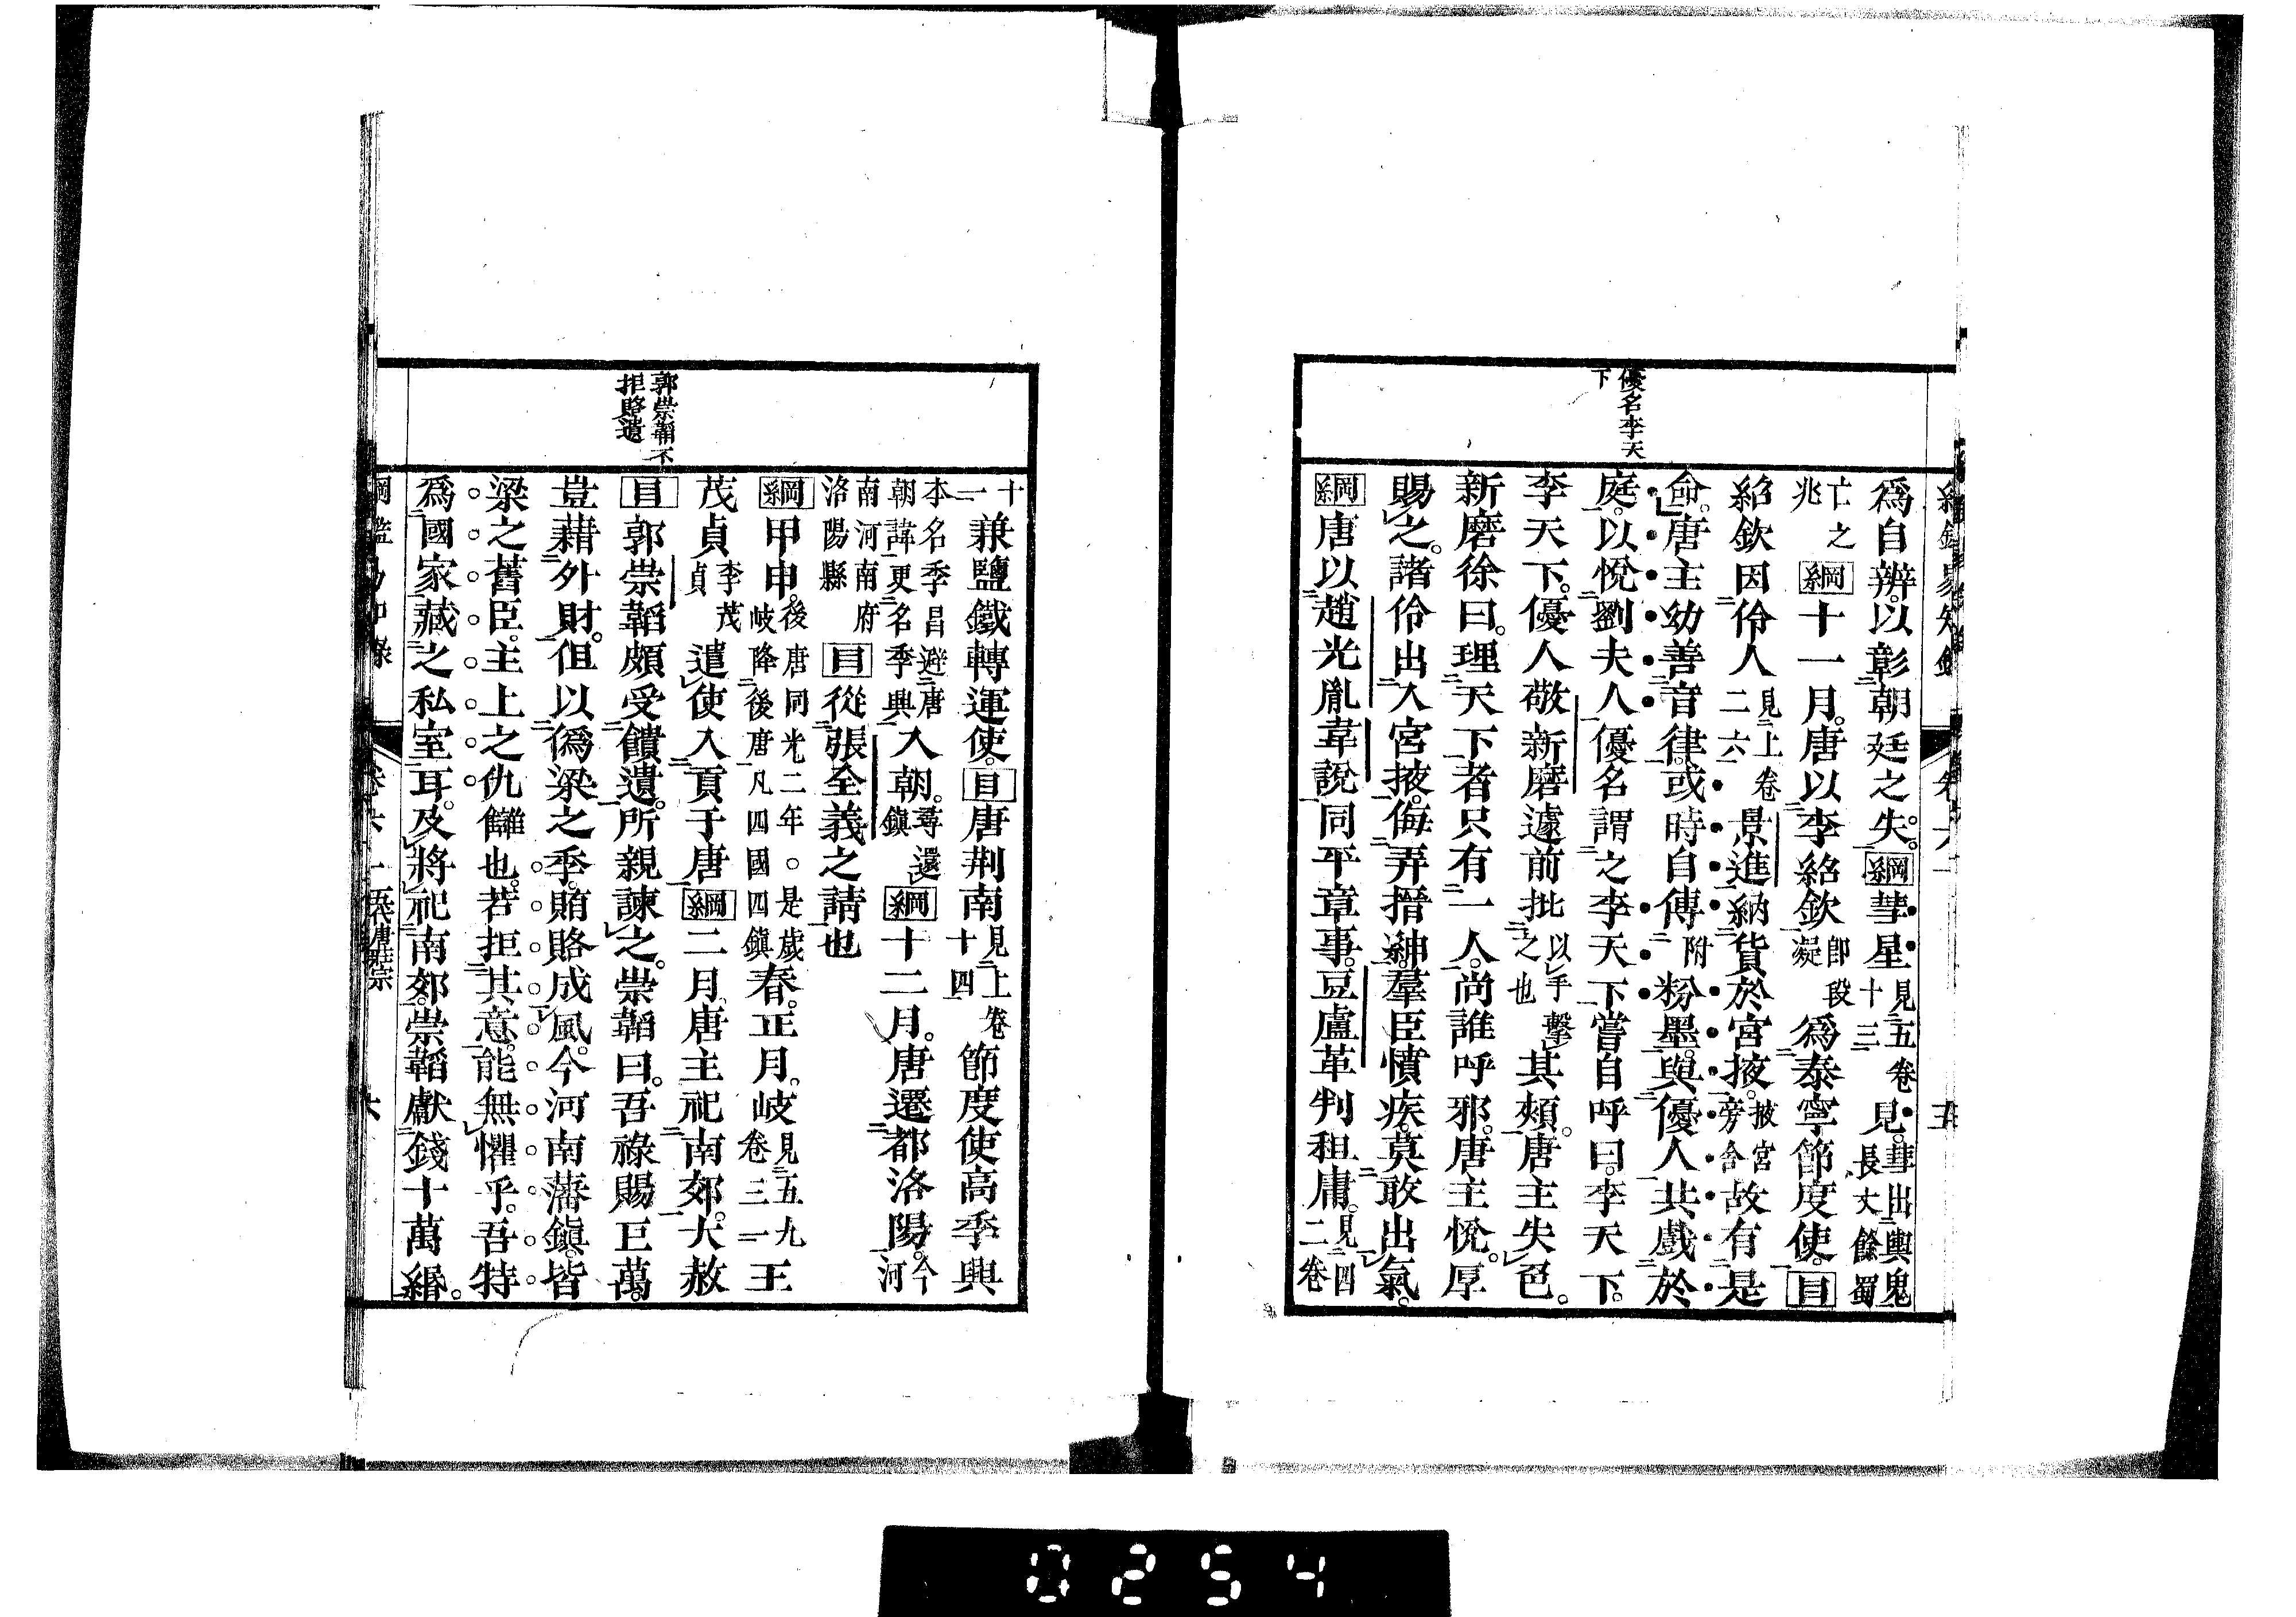 優名李天
下
爲自辨以彰朝廷之失。綱彗星見五卷十三見。彗出輿鬼長丈餘蜀
亡之兆綱十一月。唐以李紹欽卽段凝爲泰寧節度使。目
紹欽因伶人見上卷二六景進納貨於宮掖。掖宮旁舍故有是
命。唐主幼善音律。或時自傅附粉墨。與優人共戲於
庭。以悅劉夫人。優名謂之李天下。嘗自呼曰。李天下。
李天下。優人敬新磨遽前批以手擊之也其頰。唐主失色。
新磨徐曰。理天下者只有一人。尚誰呼邪。唐主悅。厚
賜之。諸伶出入宮掖。侮弄搢紳。羣臣憤疾。莫敢出氣。
綱唐以趙光胤韋說同平章事。豆盧革判租庸。見四二卷
十一兼鹽鐵轉運使。目唐荆南見上卷十四節度使高季興
本名季昌避唐朝諱更名季興入朝。尋還鎭綱十二月。唐還都洛陽。今河
南河南府洛陽縣目從張全義之請也
綱甲申。後唐同光二年。是歲岐降後唐凡四國四鎭春。正月。岐見五九卷三一王
茂貞李茂貞遣使入貢于唐綱二月。唐主祀南郊。大赦
目郭崇韜頗受饋遺。所親諫之。崇韜曰。吾祿賜巨萬。
豈藉外財。但以僞梁之季。賄賂成風。今河南藩鎭。皆
梁之舊臣。主上之仇讎也。若拒其意。能無懼乎。吾特
爲國家藏之私室耳。及將祀南郊。崇韜獻錢十萬緡。
郭崇韜不
拒賂遺
六
0254